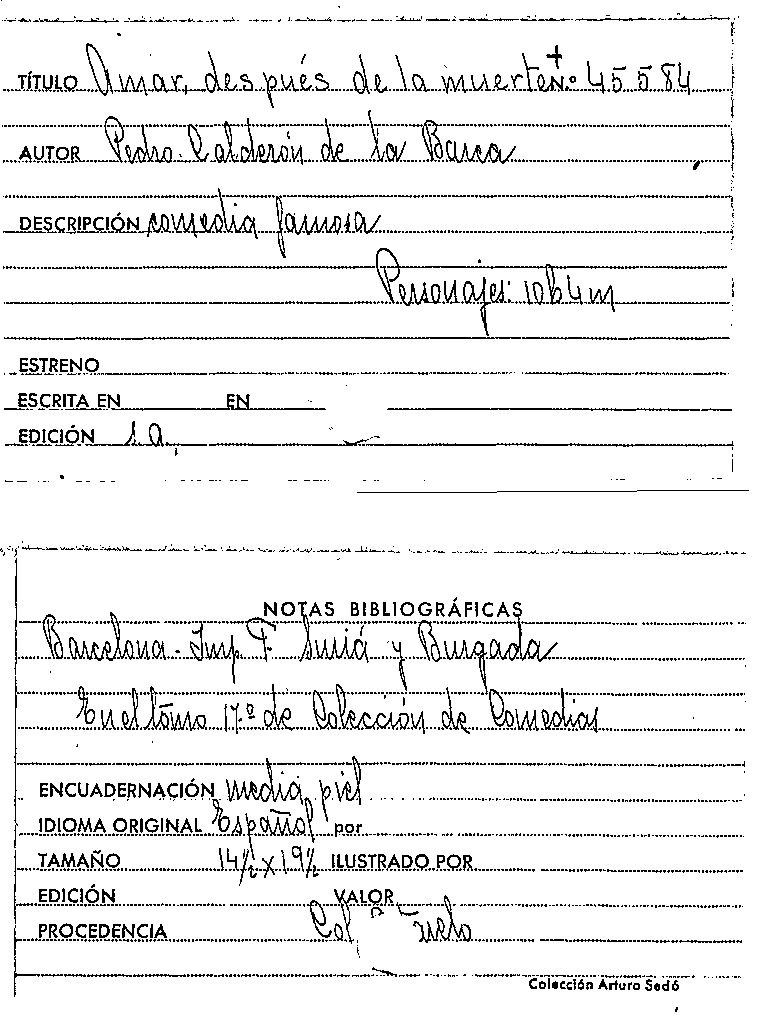 TÍTULO Amar, después de la muerte + N.º 45584
AUTOR Pedro Calderón de la Barca
DESCRIPCIÓN comedia famosa
Personajes: 10 h 4 m
ESTRENO
ESCRITA EN EN
EDICIÓN s.a.
NOTAS BIBLIOGRÁFICAS
Barcelona - Imp. F. Suriá y Burgada
En el tomo 17.º de Colección de Comedias
ENCUADERNACIÓN media piel
IDIOMA ORIGINAL Español por
TAMAÑO 14½ x 19½ ILUSTRADO POR
EDICIÓN VALOR
PROCEDENCIA Col.
Colección Arturo Sedó